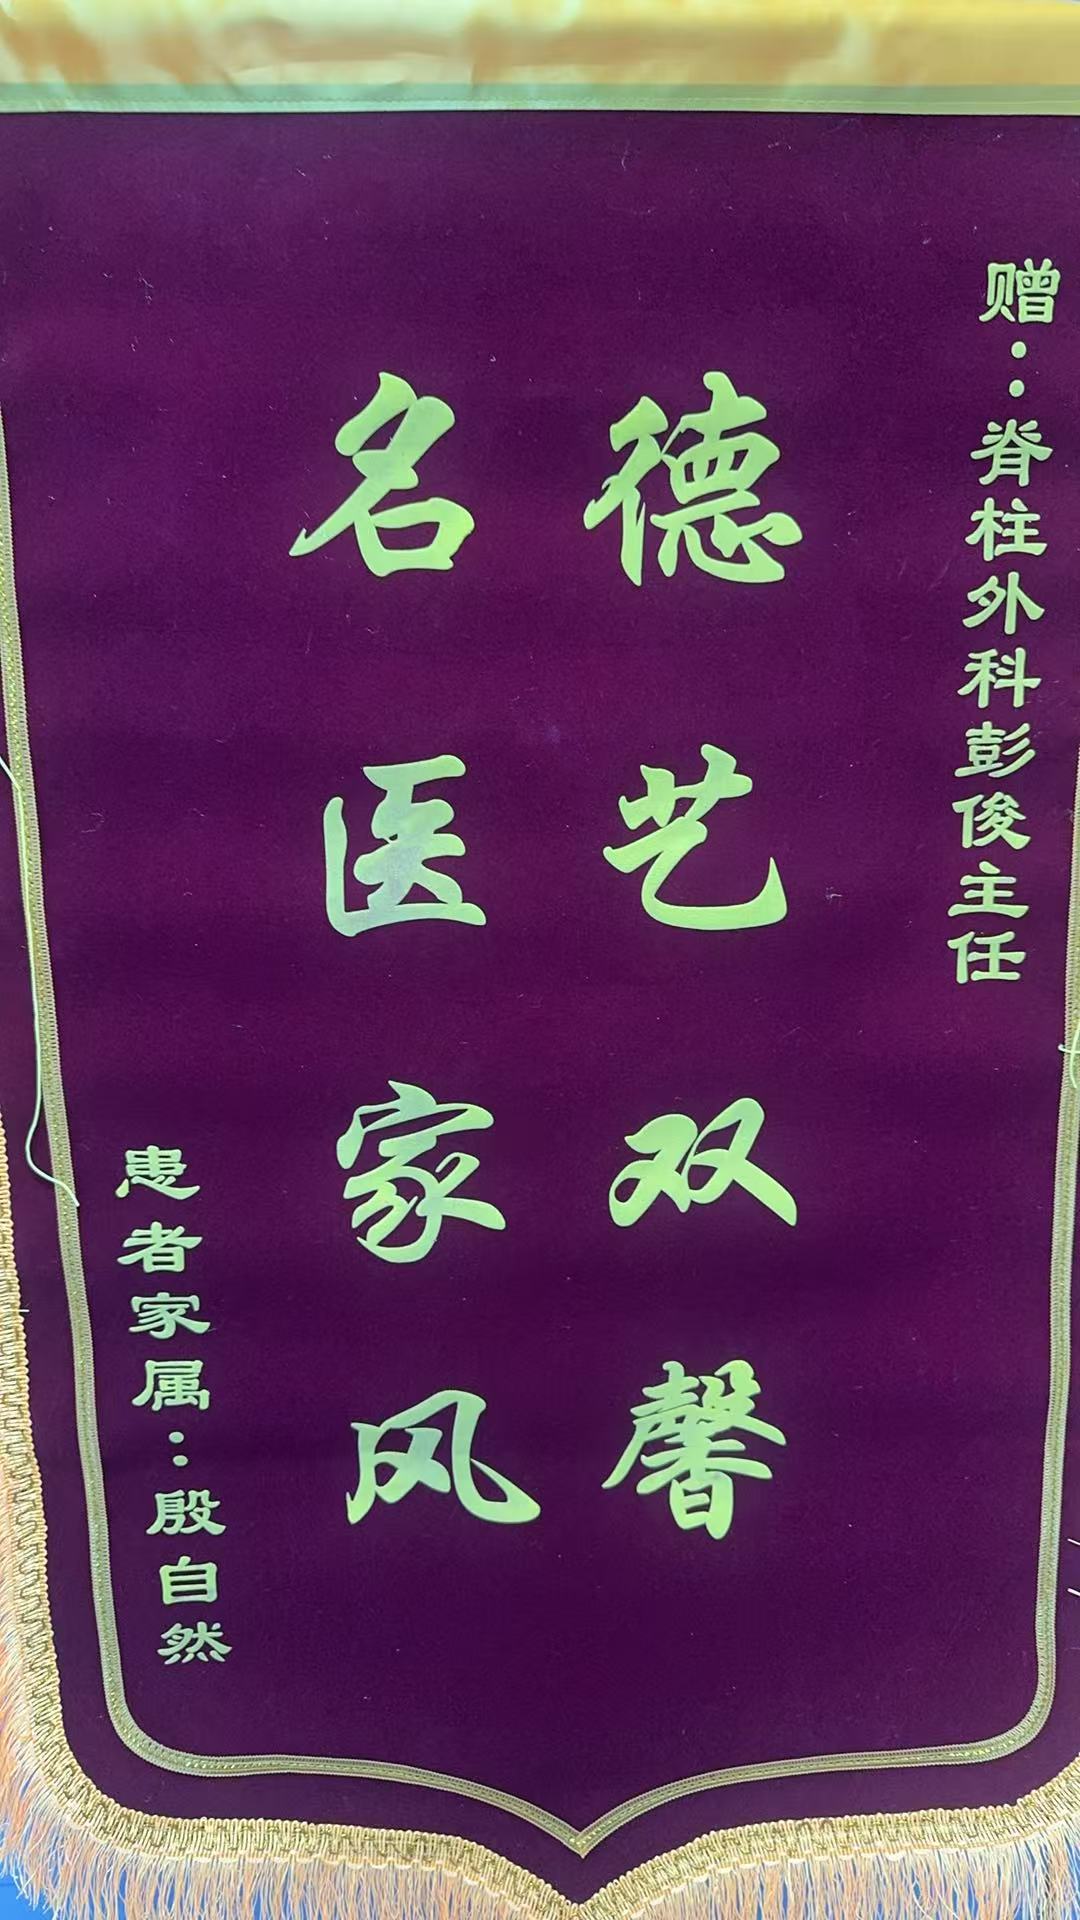 赠：脊柱外科彭俊主任
德艺双馨
名医家风
患者家属：殷自然